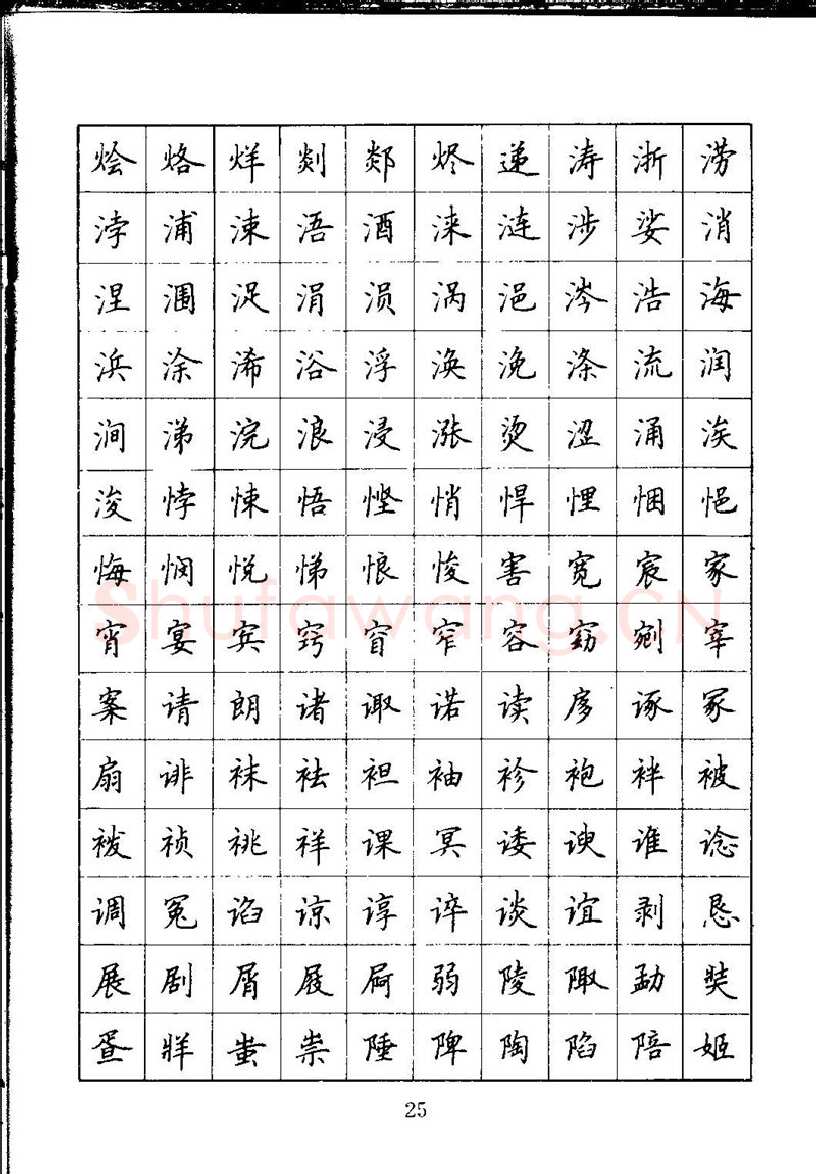 烩烙烊剡郯烬递涛浙涝
浡浦涑浯酒涞涟涉娑消
涅涠浞涓涢涡浥涔浩海
浜涂浠浴浮涣浼涤流润
涧涕浣浪浸涨烫涩涌涘
浚悖悚悟悭悄悍悝悃悒
悔悯悦悌悢悛害宽宸家
宵宴宾窍窅窄容窈剜宰
案请朗诸诹诺读扅诼冢
扇诽袜袪袒袖袗袍袢被
袯祯祧祥课冥诿谀谁谂
调冤谄谅谆谇谈谊剥恳
展剧屑屐屙弱陵陬勐奘
疍牂蚩祟陲陴陶陷陪姬
25
Shufawang.CN